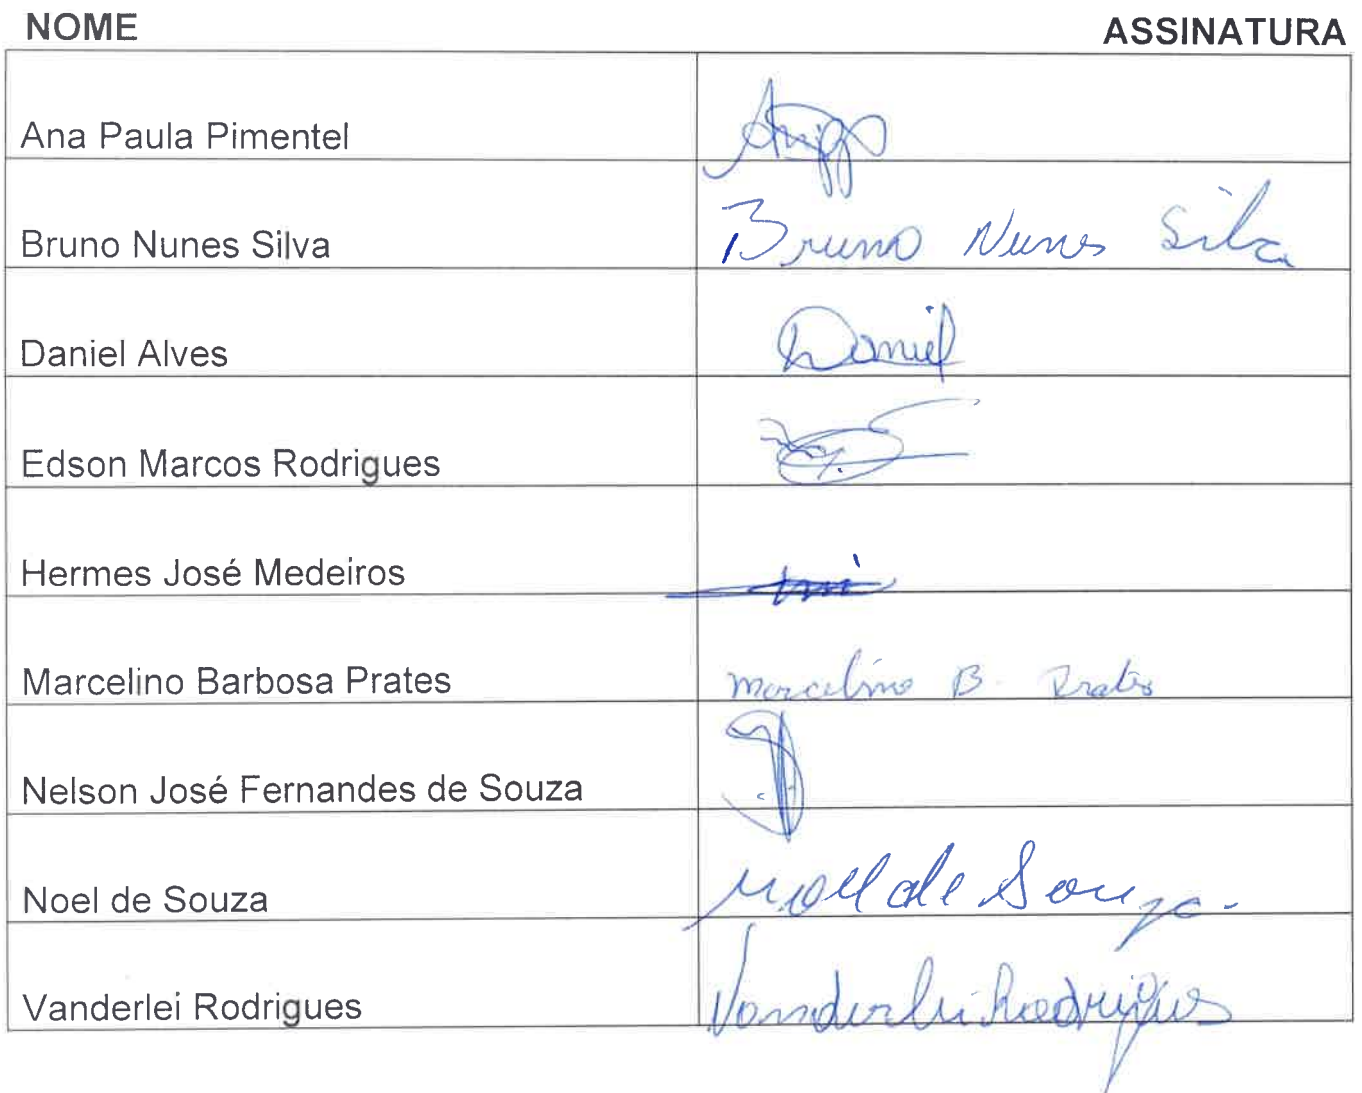 NOME ASSINATURA
Ana Paula Pimentel
Bruno Nunes Silva Bruno Nunes Silva
Daniel Alves Daniel
Edson Marcos Rodrigues
Hermes José Medeiros
Marcelino Barbosa Prates Marcelino B. Prates
Nelson José Fernandes de Souza
Noel de Souza Noel de Souza.
Vanderlei Rodrigues Vanderlei Rodrigues